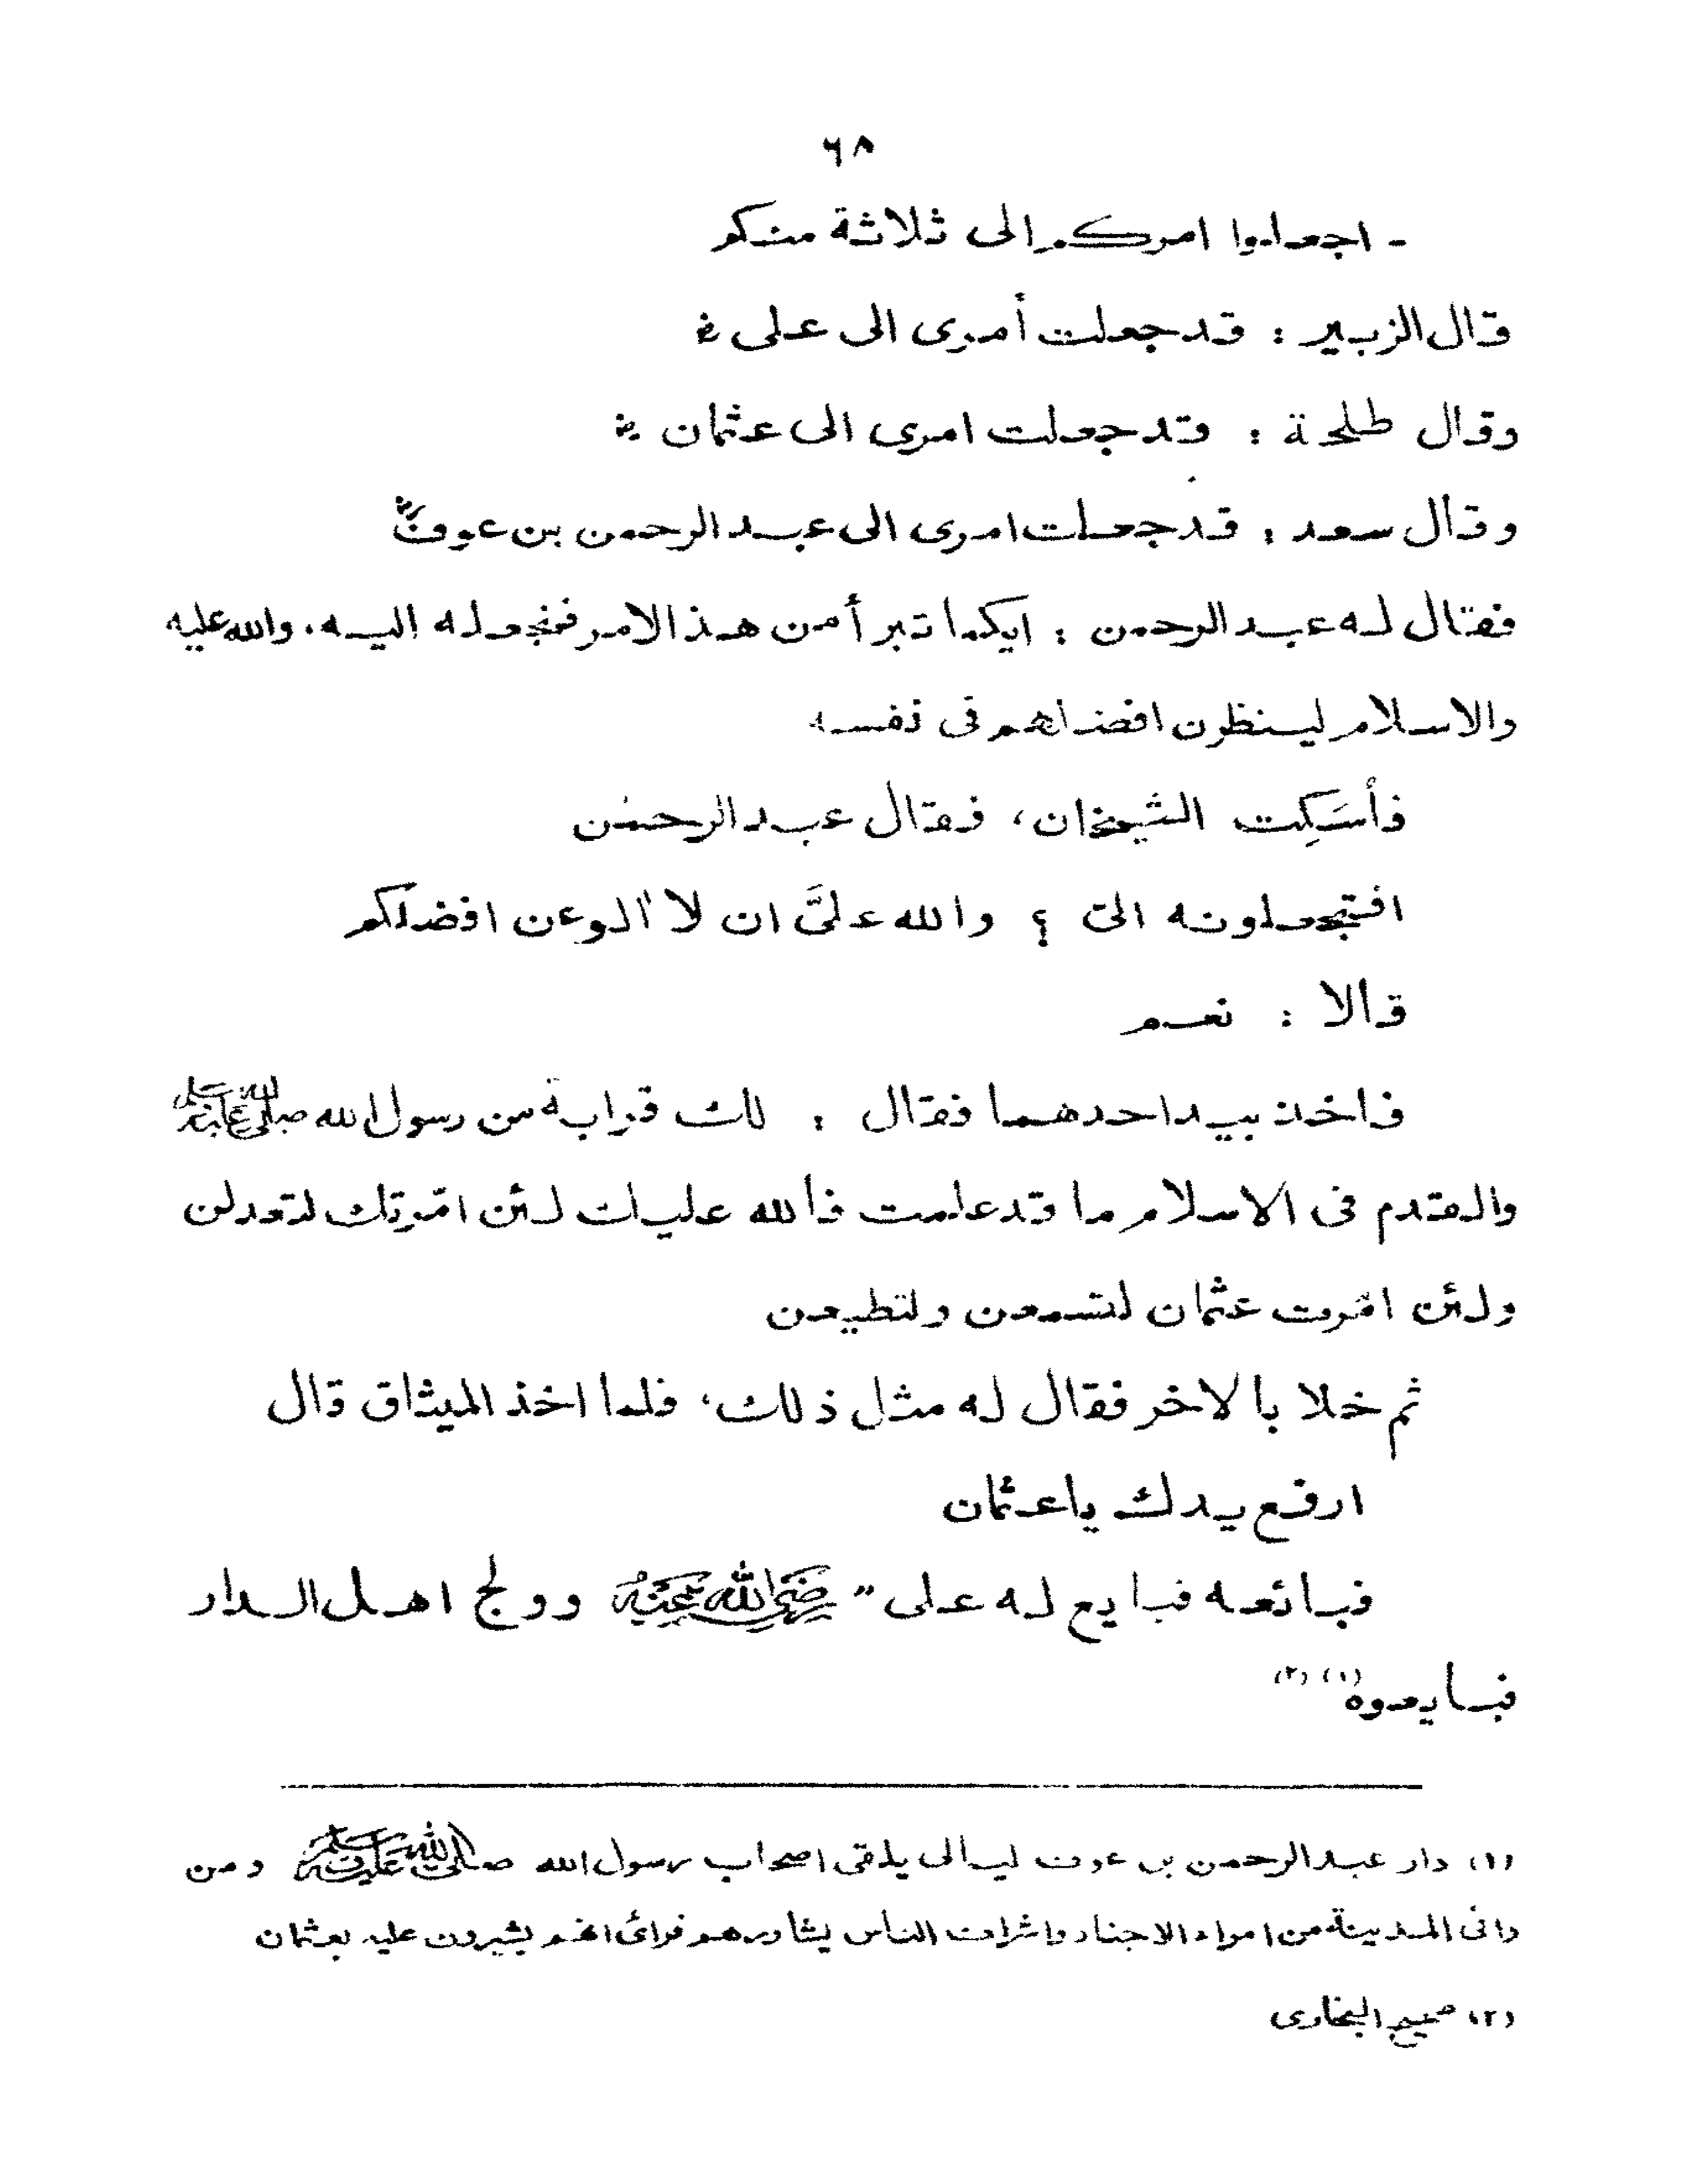 ٦٨
- اجعلوا امركم الى ثلاثة منكم
قال الزبير : قد جعلت أمرى الى على ؓ
وقال طلحة : قد جعلت امرى الى عثمان ؓ
وقال سعد : قد جعلت امرى الى عبد الرحمن بن عوفؓ
فقال له عبد الرحمن : ايكما تبرأ من هذا الامر فنجعله اليه، والله عليه
والاسلام لينظرن افضلهم فى نفسه
فأسكِت الشيخان، فقال عبد الرحمٰن
افتجعلونه الىّ ؟ والله علىَّ ان لا اٰلو عن افضلكم
قالا : نعم
فاخذ بيد احدهما فقال : لك قرابة من رسول الله صلى الله عليه وسلم
والقدم فى الاسلام ما قد علمت فالله عليك لئن امّرتك لتعدلن
ولئن امّرت عثمان لتسمعن ولتطيعن
ثم خلا بالاخر فقال له مثل ذلك، فلما اخذ الميثاق قال
ارفع يدك ياعثمان
فبائعه فبايع له على" رضي الله عنه وولج اهل الدار
فبايعوه (١) (٢)
(١) دار عبد الرحمن بن عوف ليالى يلقى اصحاب رسول الله صلى الله عليه وسلم ومن
وافى المدينة من امراء الاجناد واشراف الناس يشاورهم فرائ انهم يشيرون عليه بعثمان
(٢) صحيح البخارى